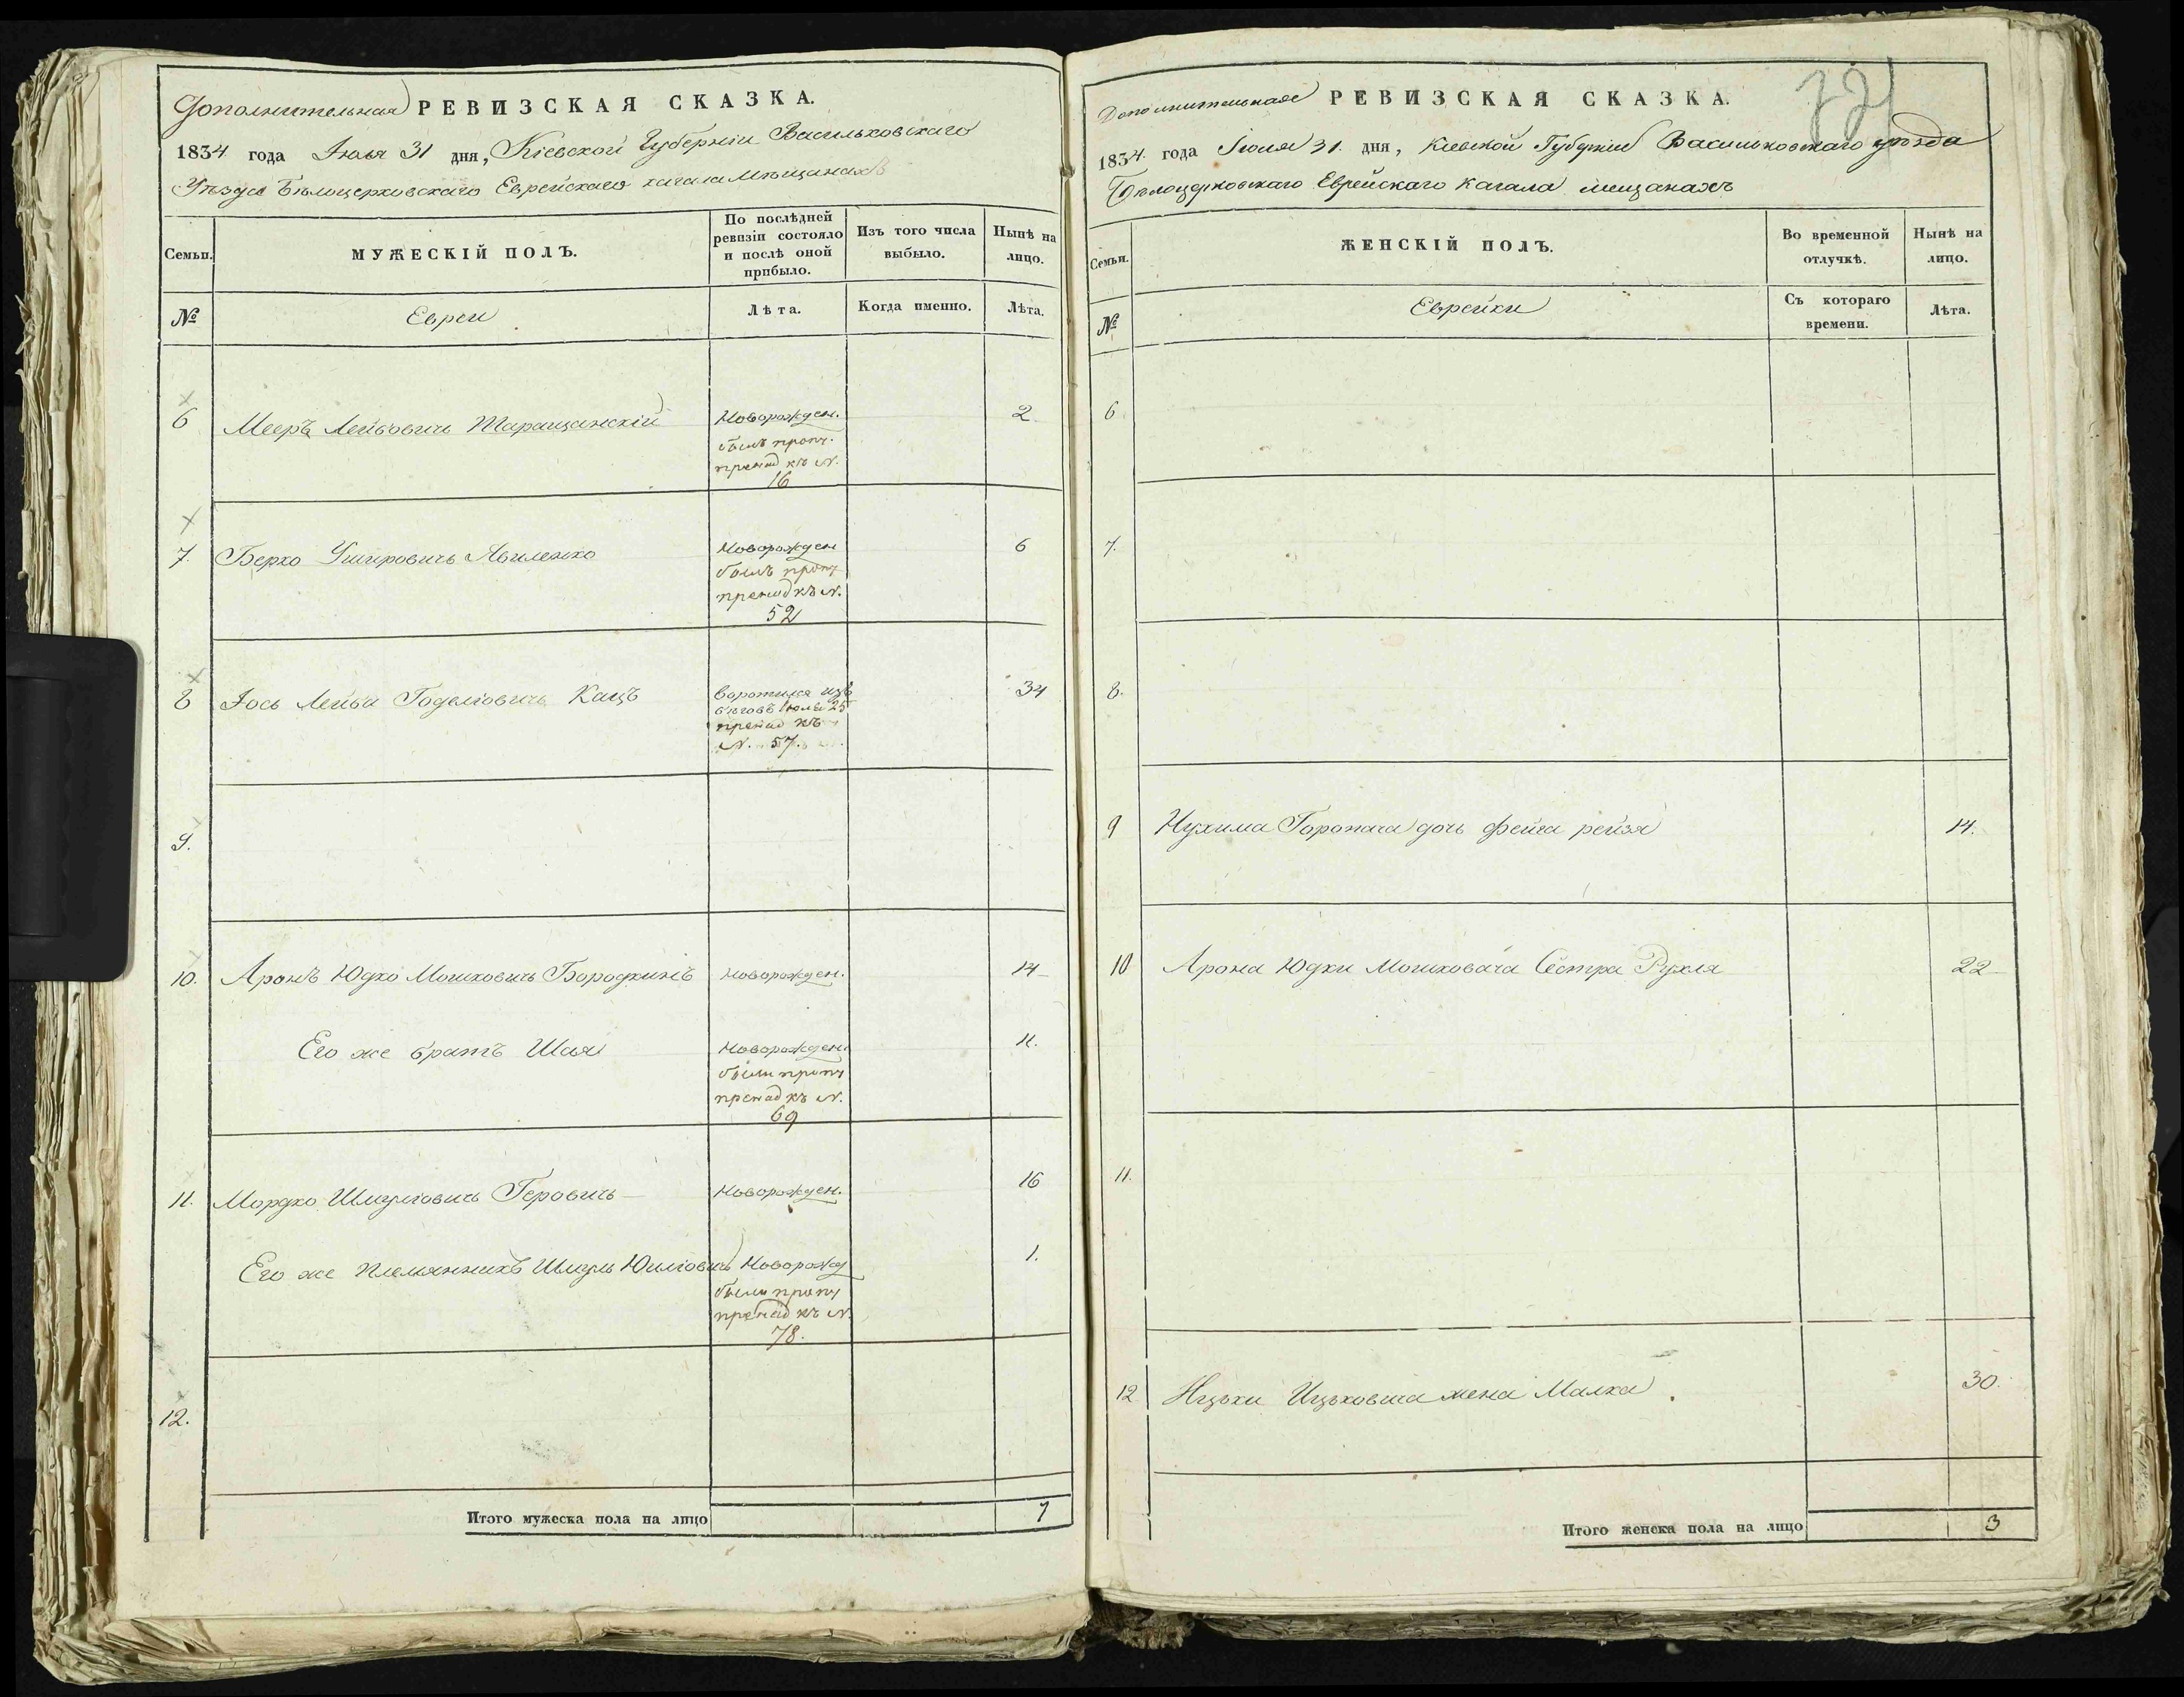 Дополнительная РЕВИЗСКАЯ СКАЗКА.
1834 года Июля 31 дня, Кіевской Губерніи Васильковскаго
Уѣзда Бѣлоцерковскаго Еврейскаго кагала Мѣщанахъ
Семьи.
МУЖЕСКІЙ ПОЛЪ.
По послѣдней
ревизіи состояло
и послѣ оной
прибыло.
Изъ того числа
выбыло.
Нынѣ на
лицо.
№
Евреи
Лѣта.
Когда именно.
Лѣта.
6
Мееръ Лейбовичь Таращанскій
Новорожден.
былъ проп.
къ N.
16
2
7.
Берко Ушеровичь
Новорожден
былъ проп
къ N.
52
6
8
Іось Лейба Годелiовичь Кацъ
воротился изъ
бѣговъ Июля 25
къ
N. 57.
34
9.
10.
Аронъ Юдко Мошковичь Бородкинъ
Новорожден.
14
Его же братъ Шая
Новорожден.
были проп
къ N.
69
11.
11.
Мордко Шмулiовичь Геровичь
Новорожден.
16
Его же племянникъ Шмуль Юилiовичь
Новорожд
были проп
къ N.
78.
1.
12.
Итого мужеска пола на лицо
7
72
Дополнительная РЕВИЗСКАЯ СКАЗКА.
1834 года Іюля 31 дня, Кіевской Губерніи Васильковскаго уѣзда
Бѣлоцерковскаго Еврейскаго Кагала мещанахъ
Семьи.
ЖЕНСКІЙ ПОЛЪ.
Во временной
отлучкѣ.
Нынѣ на
лицо.
№
Еврейки
Съ котораго
времени.
Лѣта.
6.
7.
8.
9
Нухима дочь Фейга рейзя
14.
10
Арона Юдки Мошковича Сестра Рухля
22
11.
12
Ицьки Ицьковича жена Малка.
30.
Итого женска пола на лицо
3